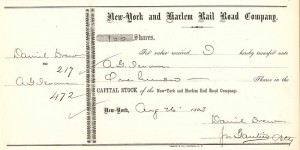 New-York and Harlem Rail Road Company.
100 Shares.
For value received I hereby transfer unto
Daniel Drew
TO
217
472
One hundred Shares in the
CAPITAL STOCK of the New-York and Harlem Rail Road Company.
New-York, Aug 26 1863
Daniel Drew